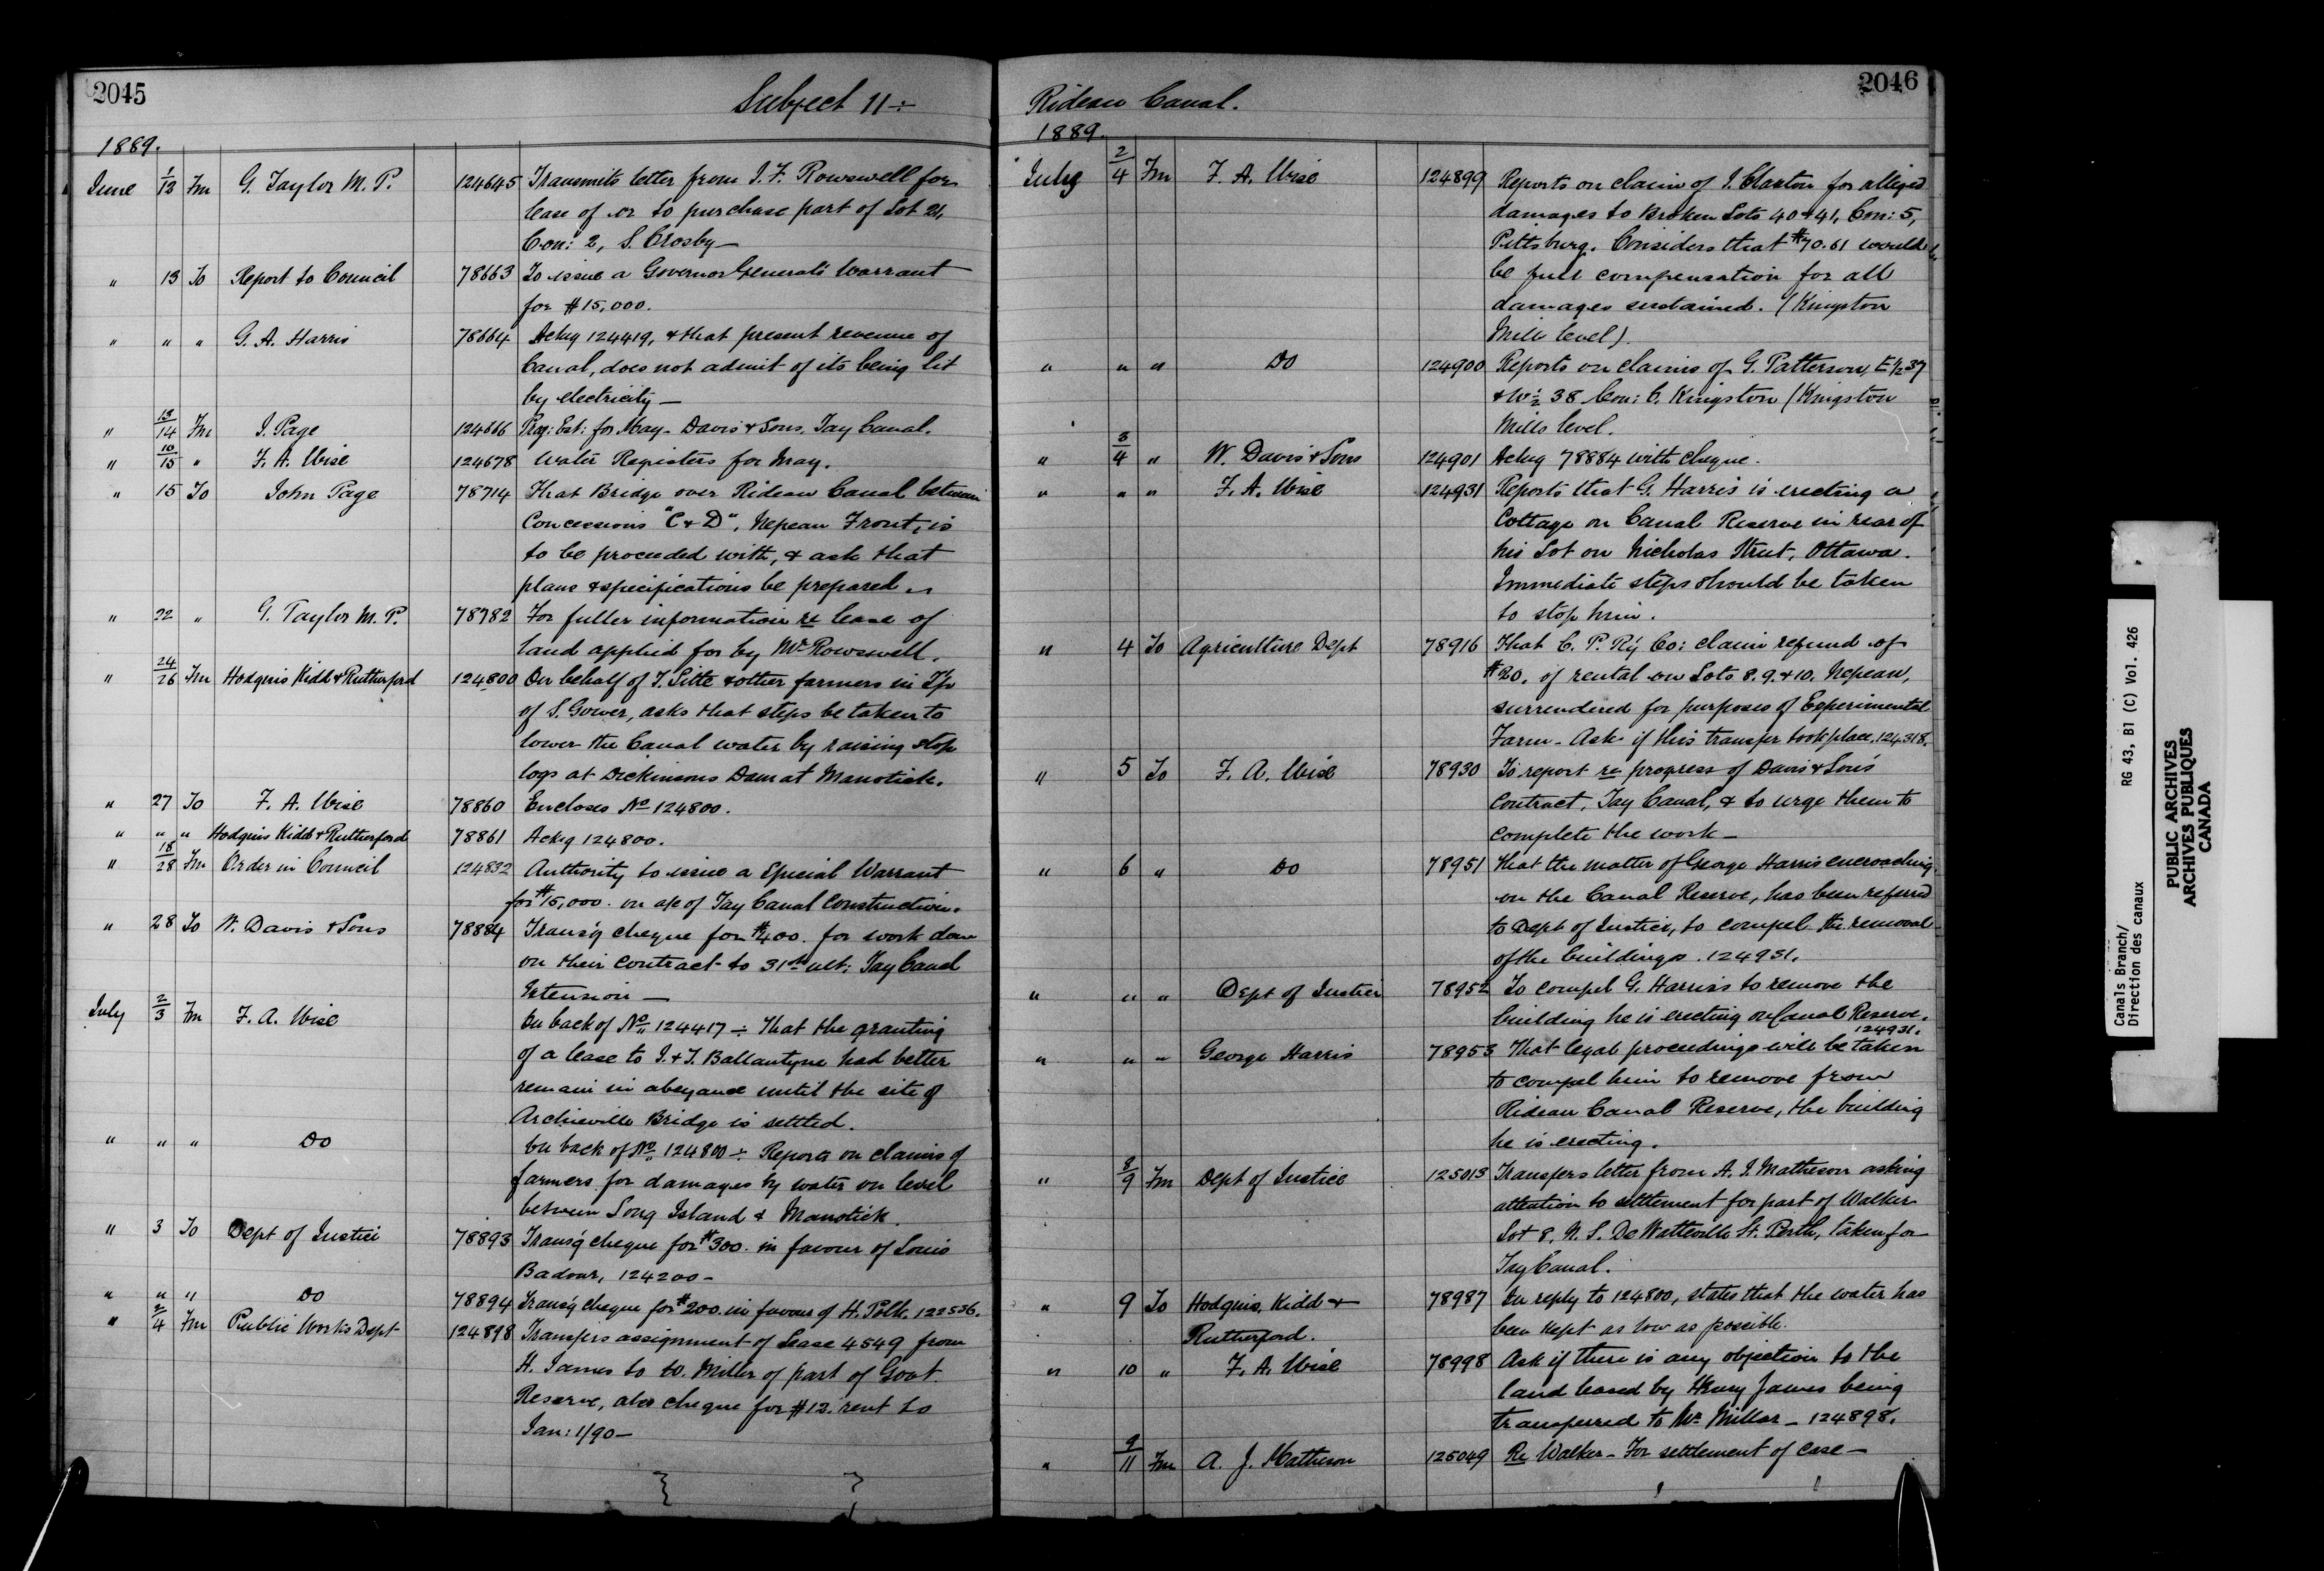 2045
Subject 11 ÷
1889.
June 1/13 Fm G. Taylor M. P. 124645 Transmits letter from J. F. Rowswell for
lease of or to purchase part of Lot 21,
Con: 2, S. Crosby—
" 13 To Report to Council 78663 To issue a Governor General's Warrant
for $15,000.
" " " G. A. Harris 78664 Ackg 124419, & that present revenue of
Canal, does not admit of its being lit
by electricity—
" 13/14 Fm J. Page 124666 Prog: Est: for May - Davis & Sons. Tay Canal.
" 10/15 " F. A. Wise 124678 Water Registers for May.
" 15 To John Page 78714 That Bridge over Rideau Canal between
Concessions "C & D", Nepean Front, is
to be proceeded with, & ask that
plans & specifications be prepared
" 22 " G. Taylor M. P. 78782 For fuller information re lease of
land applied for by Mr Rowswell.
" 24/26 Fm Hodgins Kidd & Rutherford 124800 On behalf of & other farmers in Tp
of S. Gower, asks that steps be taken to
lower the Canal water by raising stop
logs at Dickinsons Dam at Manotick.
" 27 To F. A. Wise 78860 Encloses No 124800.
" " " Hodgins Kidd & Rutherford 78861 Ackg 124800.
" 18/28 Fm Order in Council 124832 Authority to issue a Special Warrant
for $15,000. on a/c of Tay Canal Construction.
" 28 To W. Davis & Sons 78884 Transg cheque for $400. for work done
on their contract to 31st ult: Tay Canal
Extension—
July 2/3 Fm F. A. Wise On back of No 124417 ÷ That the granting
of a lease to J. & T. Ballantyne had better
remain in abeyance until the site of
Archieville Bridge is settled.
" " " Do On back of No 124800 ÷ Reports on claims of
farmers for damages by water on level
between Long Island & Manotick.
" 3 To Dept of Justice 78893 Transg cheque for $300. in favour of Louis
Badour, 124200 -
" " " Do 78894 Transg cheque for $200. in favour of H. Polk. 122536.
" 2/4 Fm Public Works Dept 124898 Transfers assignment of Lease 4549 from
H. James to W. Miller of part of Govt
Reserve, also cheque for $12. rent to
Jan: 1/90—
2046
Rideau Canal.
1889.
July 2/4 Fm F. A. Wise 124899 Reports on claim of J. Claxton for alleged
damages to Broken Lots 40 & 41, Con: 5,
Pittsburg. Considers that $70.61 would
be full compensation for all
damages sustained. (Kingston
Mills level).
" " " Do 124900 Reports on claims of G. Patterson, E 1/2 37
& W 1/2 38 Con: 6. Kingston (Kingston
Mills level.
" 3/4 " W. Davis & Sons 124901 Ackg 78884 with cheque.
" " " F. A. Wise 124931 Reports that G. Harris is erecting a
Cottage on Canal Reserve in rear of
his Lot on Nicholas Street, Ottawa.
Immediate steps should be taken
to stop him.
" 4 To Agriculture Dept 78916 That C. P. Ry Co: claim refund of
$20. of rental on Lots 8. 9. & 10. Nepean,
surrendered for purposes of Experimental
Farm - Ask if this transfer took place. 124318.
" 5 To F. A. Wise 78930 To report re progress of Davis & Sons
contract, Tay Canal, & to urge them to
complete the work—
" 6 " Do 78951 That the matter of George Harris encroaching
on the Canal Reserve, has been referred
to Dept of Justice, to compel the removal
of the buildings. 124931.
" " " Dept of Justice 78952 To compel G. Harris to remove the
building he is erecting on Canal Reserve.
124931.
" " " George Harris 78953 That legal proceedings will be taken
to compel him to remove from
Rideau Canal Reserve, the building
he is erecting.
" 8/9 Fm Dept of Justice 125013 Transfers letter from A. J. Matheson asking
attention to settlement for part of Walker
Lot 8, N. S. De Watteville St. Perth, taken for
Tay Canal.
" 9 To Hodgins, Kidd & 78987 In reply to 124800, states that the water has
Rutherford. been kept as low as possible.
" 10 " F. A. Wise 78998 Ask if there is any objection to the
land leased by Henry James being
transferred to Wm Millar - 124898.
" 9/11 Fm A. J. Matheson 125049 Re Walker - For settlement of case—
Canals Branch/
Direction des canaux
RG 43, B1 (C) Vol. 426
PUBLIC ARCHIVES
ARCHIVES PUBLIQUES
CANADA